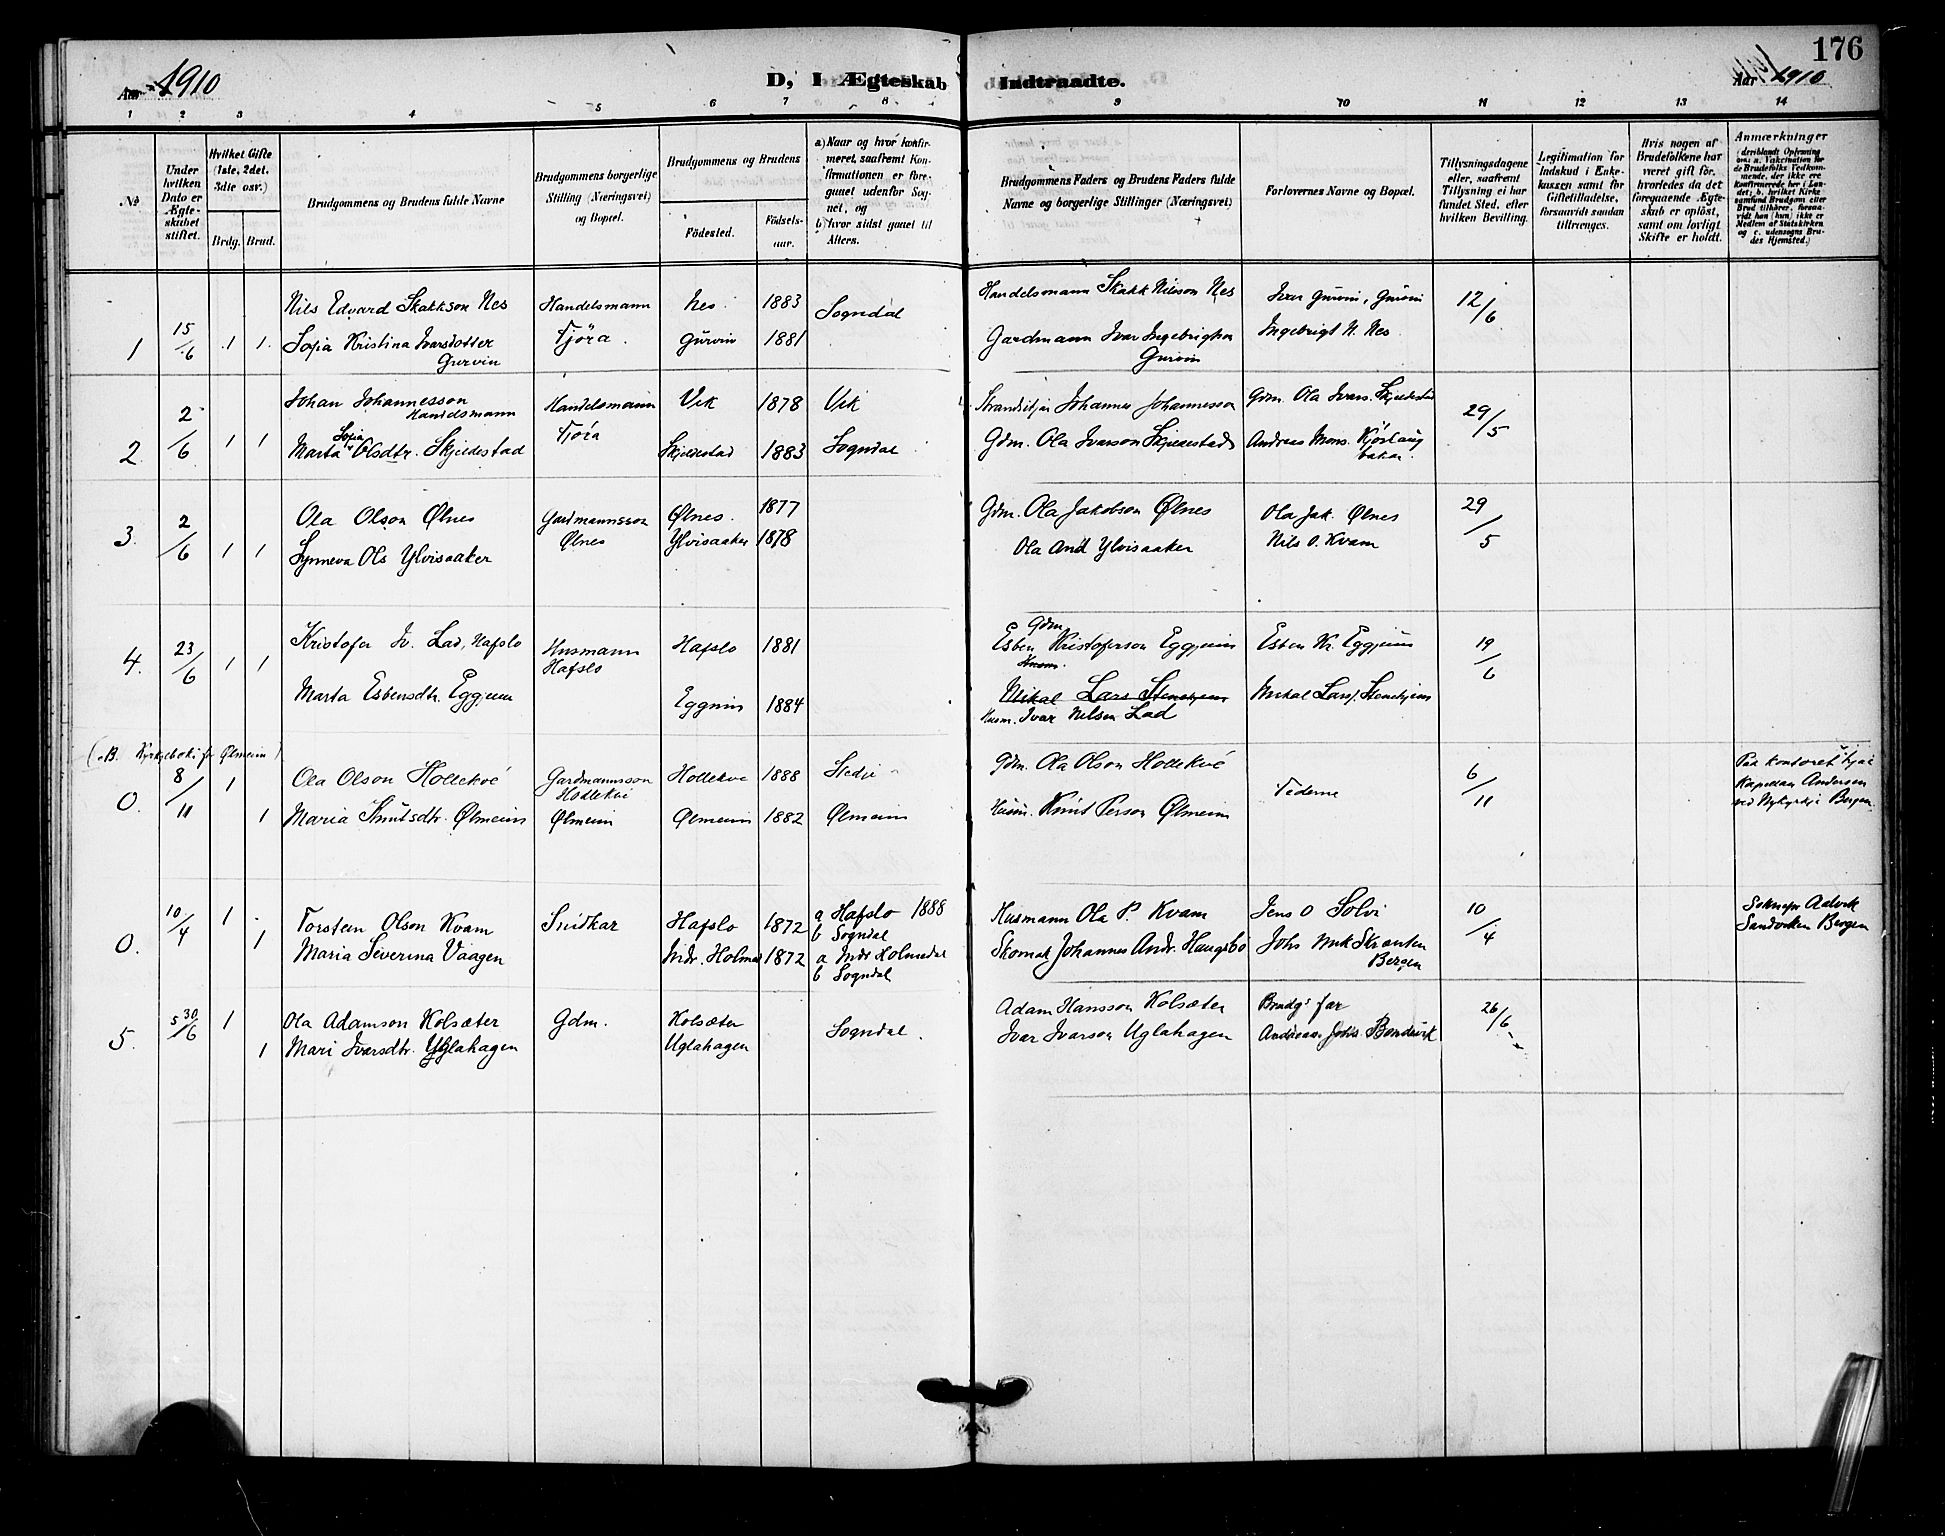 176
Aar 1910
D, I Ægteskab Indtraadte.
Aar 1910
1 2 3 4 5 6 7 8 9 10 11 12 13 14
No
Under hvilken Dato er Ægteskabet stiftet.
Hvilket Gifte (1ste, 2det, 3die osv.)
Brdg. Brud.
Brudgommens og Brudens fulde Navne
Brudgommens borgerlige Stilling (Næringsvei) og Bopæl.
Brudgommens og Brudens
Fødested. Fødselsaar.
a) Naar og hvor konfirmeret, saafremt Konfirmationen er foregaaet udenfor Sognet, og
b) hvor sidst gaaet til Alters.
Brudgommens Faders og Brudens Faders fulde Navne og borgerlige Stillinger (Næringsvei)
Forlovernes Navne og Bopæl.
Tillysningsdagene eller, saafremt Tillysning ei har fundet Sted, efter hvilken Bevilling.
Legitimation for Indskud i Enkekassen samt for Giftetilladelse, forsaavidt saadan tiltrænges.
Hvis nogen af Brudefolkene har været gift før, hvorledes da det foregaaende Ægteskab er opløst, samt om lovligt Skifte er holdt.
Anmærkninger
(deriblandt Opførsning om: a. Vakcination for de Brudefolks Vedkommende, der ikke ere konfirmerede her i Landet; b. hvilket Kirkesamfund Brudgom eller Brud tilhører, forsaavidt han (hun) ikke er Medlem af Statskirken og c. udensogns Brudes Hjemsted.)
1 15/6 1 1. Nils Edvard Skakkson Nes Handelsmann Nes 1883 Sogndal Handelsmann Skakk Nilsson Nes Ivar Gurvin, Gurvin 12/6
Sofia Kristina Ivarsdotter Gurvin Fjöra. Gurvin 1881 Gardmann Ivar Ingebrigtson Gurvin Ingebrigt N. Nes
2. 2/6 1 1 Johan Johannesson Handelsmann Handelsmann Vik 1878 Vik Johannes Johannesson Gdm. Ola Ivars. Skjeldestad 29/5
Marta Sofia Olsdtr. Skjeldestad Fjöra Skjeldestad 1883 Sogndal Gdm. Ola Ivarson Skjeldestad Andreas Mons. Kjörlaug bakar.
3. 2/6 1 1 Ola Olson Ølnes Gardmannsson Ølnes. 1877 Gdm. Ola Jakobson Ølnes Ola Jak. Ølnes 29/5
Synneva Ols Ylvisaaker Ølnes Ylvisaaker 1878 Ola And Ylvisaaker Nils O. Kvam
4. 23/6 1 1 Kristofer Iv. Lad, Hafslo Husmann Hafslo Hafslo 1881 Gdm Esben Kristoferson Eggjum Esben Kr. Eggjum 19/6
Marta Esbensdtr. Eggjum Eggjum 1884 Husm. Mikal Lars Stenehjem Mikal Lars. Stenehjem
Husm. Ivar Nilsen Lad
Kyrkjebok for Ølmeim)
0. 8/11 1 Ola Olson Hollekvé Gardmannsson Hollekve Hollekve 1888 Stedje Gdm. Ola Olson Hollekvé Federne 6/11 Paa kontoret Kapellan Andersen ved Nykyrkja Bergen.
1 Maria Knutsdtr. Ølmeim Ølmeim Ølmeim 1882 Ølmeim Husm. Knut Person Ølmeim
0. 10/4 1 Torstein Olson Kvam Snidkar Hafslo 1872 a Hafslo 1888 b Sogndal Husmann Ola P. Kvam Jens O Solvi 10/4 Soknepr Sandviken Bergen
1 Maria Severina Vaagen Indr. Holmed 1872 a Indr Holmedal b Sogndal Skomak Johannes Andr. Haugsbö Johs Skranten Bergen
5. 30/6 1 Ola Adamson Kolsæter Gdm. Kolsæter Sogndal. Adam Hansson Kolsæter Brudgs far 26/6
1 Mari Ivarsdtr. Uglahagen Uglahagen Ivar Ivarson Uglahagen Andreas Johs. Bondevik